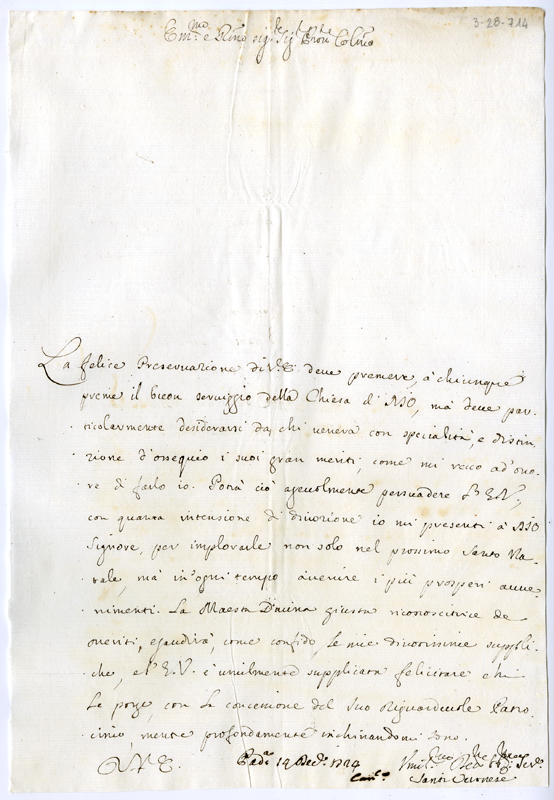 3-28-714
Em.mo e R.mo Sig.r Sig.r P.rone Col.mo
La felice Preservazione di V.E. deve premere, à chiunque
preme il buon servuggio della Chiesa d'DIO, mà deve par-
ticolarmente desiderarsi da, chi venera con specialità, e distin-
zione d'ossequio i suoi gran meriti, come mi reco ad'ono-
re di farlo io. Potrà ciò agevolmente persuadere l'E.V.,
con quanta intensione di divozione io mi presenti à DIO
Signore, per implorarle non solo nel prossimo Santo Na-
tale, mà in'ogni tempo avenire i più prosperi avve-
nimenti. La Maestà Divina giusta riconoscitrice de
meriti, esaudirà, come confido, le mie divotissime suppli-
che, e l'E.V. è umilmente supplicata felicitare chi
le porge, con la concessione del Suo riguardevole Patro-
cinio, mentre profondamente inchinandomi sono.
Di V.E.
Pad.a 14 Dec. 1724
Umil.mo Serv.
Santi